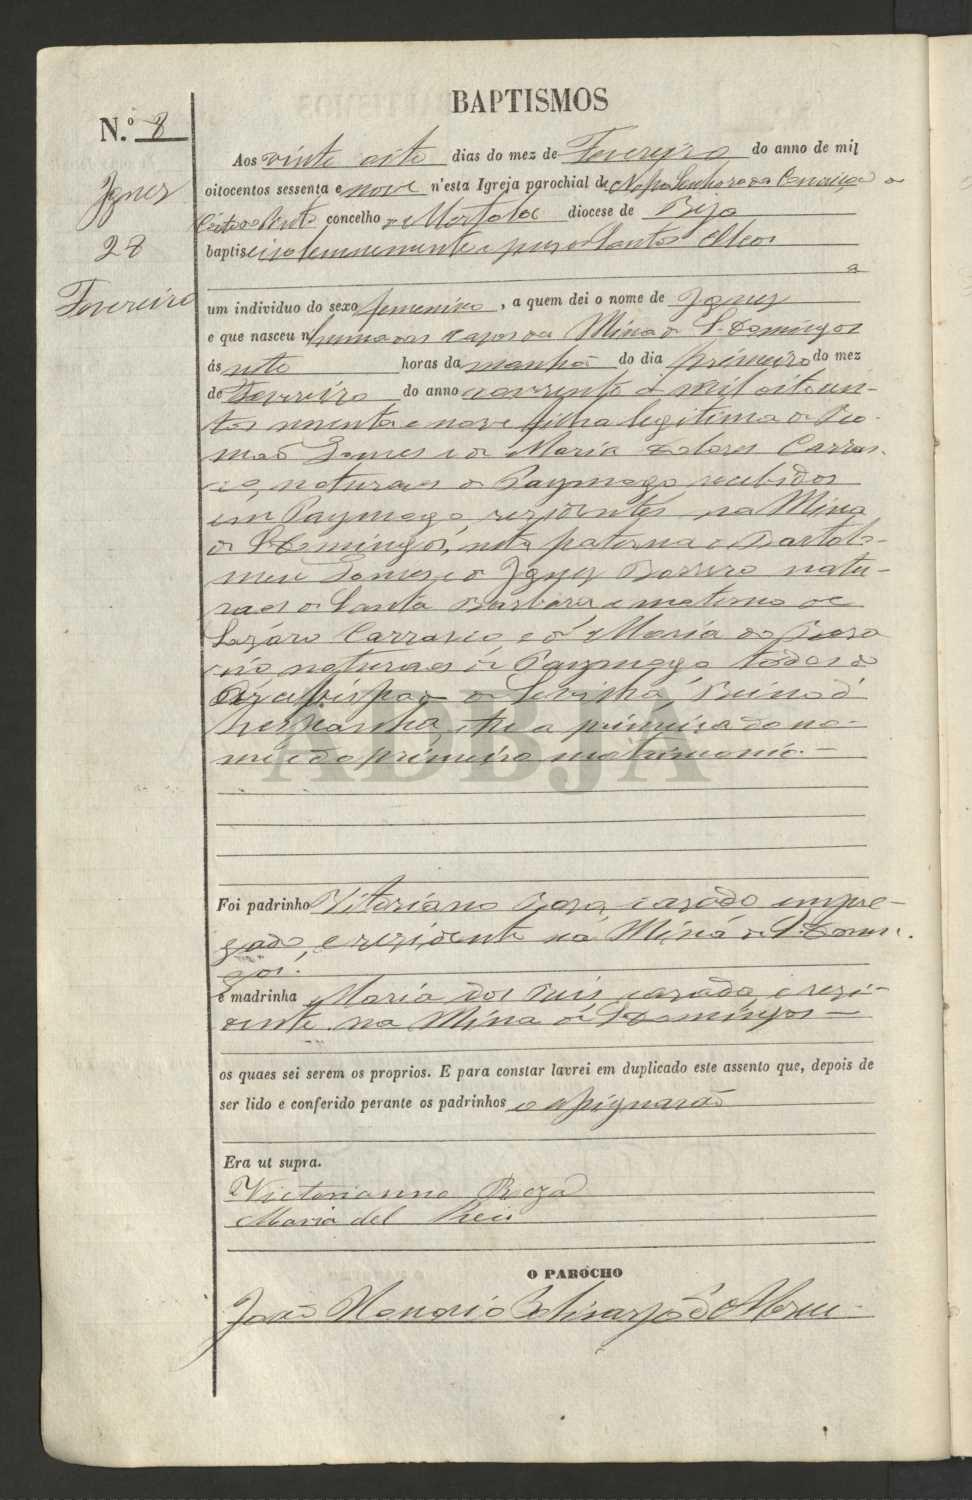 BAPTISMOS
N.º 8
Ignez
28
Fevereiro
Aos vinte oito dias do mez de Fevereiro do anno de mil
oitocentos sessenta e nove n'esta Igreja parochial de Nossa Senhora da Conceição
concelho de Mertola diocese de Beja
baptisei solemnemente e puz os Santos Oleos
a
um individuo do sexo femenino, a quem dei o nome de Ignez
e que nasceu n'huma das casas da Mina de S. Domingos
ás sete horas da manhã do dia primeiro do mez
de Fevereiro do anno corrente de mil oitocen-
tos secenta e nove filha legitima de
Gomes e de Maria Dolores Carras-
co, naturaes de Paymogo recebidos
em Paymogo rezidentes na Mina
de S. Domingos, neta paterna de Bartolo-
meu Gomes e de Ignez Borrero natu-
raes de Santa Barbara e materna de
Lazaro Carrasco e de Maria do Roza
rio naturaes de Paymogo todos do
Arcebispado de Sevilha, Reino de
Hespanha, he a primeira do no-
me e do primeiro matrimonio. —
Foi padrinho Vitoriano Roza, cazado empre-
gado, e rezidente na Mina de S. Domin-
gos.
e madrinha Maria dos Reis cazada e rezi-
dente na Mina de S. Domingos —
os quaes sei serem os proprios. E para constar lavrei em duplicado este assento que, depois de
ser lido e conferido perante os padrinhos o assignarão
Era ut supra.
Victorianno Roza
Maria del Reis
O PAROCHO
João Honorio d'Abreu
ADBJA